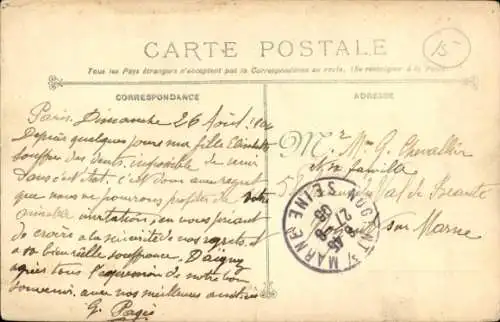 CARTE POSTALE
15
Tous les Pays étrangers n'acceptent pas la Correspondance au recto. (Se renseigner à la Poste)
CORRESPONDANCE
ADRESSE
Paris, Dimanche 26 Août
Depuis quelques jours ma fille
souffre des dents, impossible de venir
Dans cet état, c'est donc avec regret
que nous ne pourrons profiter de votre
aimable invitation, en vous priant
de croire à la sincérité de nos regrets, et
à sa bien réelle souffrance.
après tous l'expression de notre bon
souvenir, avec nos meilleures amitiés
G. Pagès
Mr Mme G. Chevallier
et sa famille
58 Val de Beauté
sur Marne
NOGENT S/ MARNE SEINE